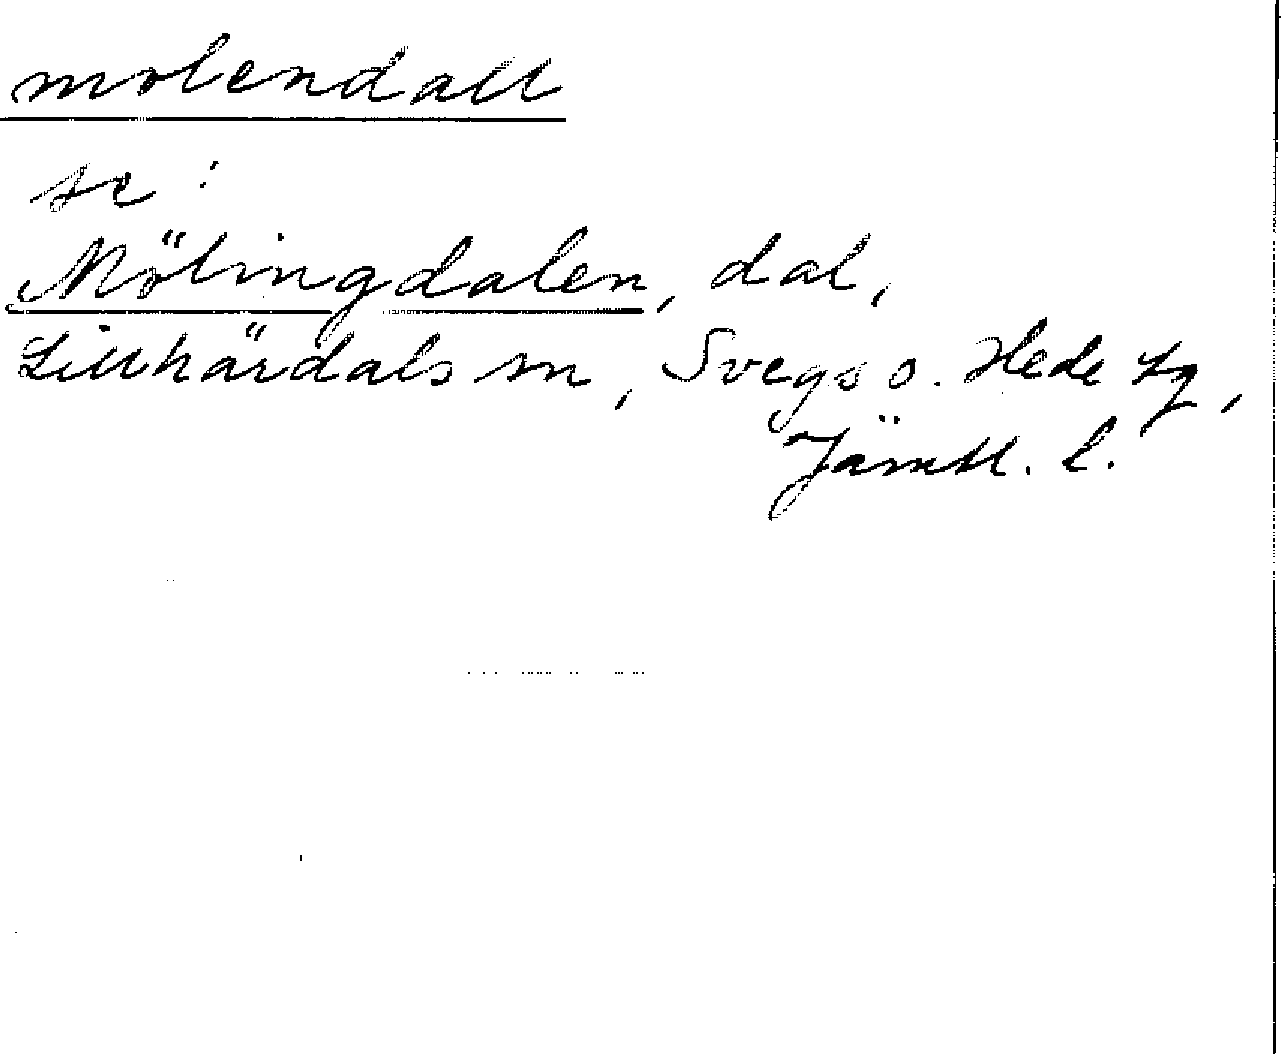 molendall
se:
Mölingdalen, dal,
Lillhärdals sn, Svegs o. Hede tg,
Jämtl. l.